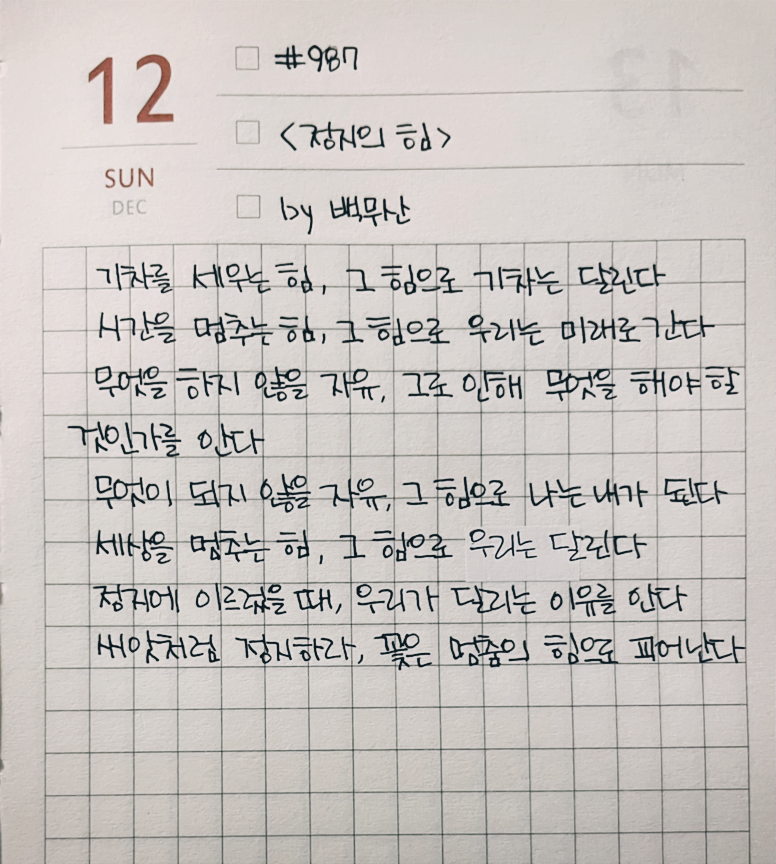 12
SUN
DEC
#987
<정지의 힘>
by 백무산
기차를 세우는 힘, 그 힘으로 기차는 달린다
시간을 멈추는 힘, 그 힘으로 우리는 미래로 간다
무엇을 하지 않을 자유, 그로 인해 무엇을 해야 할
것인가를 안다
무엇이 되지 않을 자유, 그 힘으로 나는 내가 된다
세상을 멈추는 힘, 그 힘으로 우리는 달린다
정지에 이르렀을 때, 우리가 달리는 이유를 안다
씨앗처럼 정지하라, 꽃은 멈춤의 힘으로 피어난다